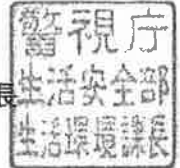 警視庁
生活安全部
生活環境課長
長